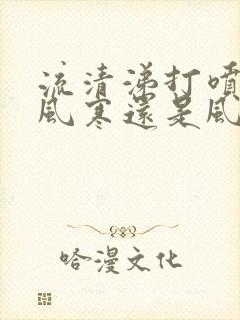 流清涕打噴
風寒還是風
哈漫文化